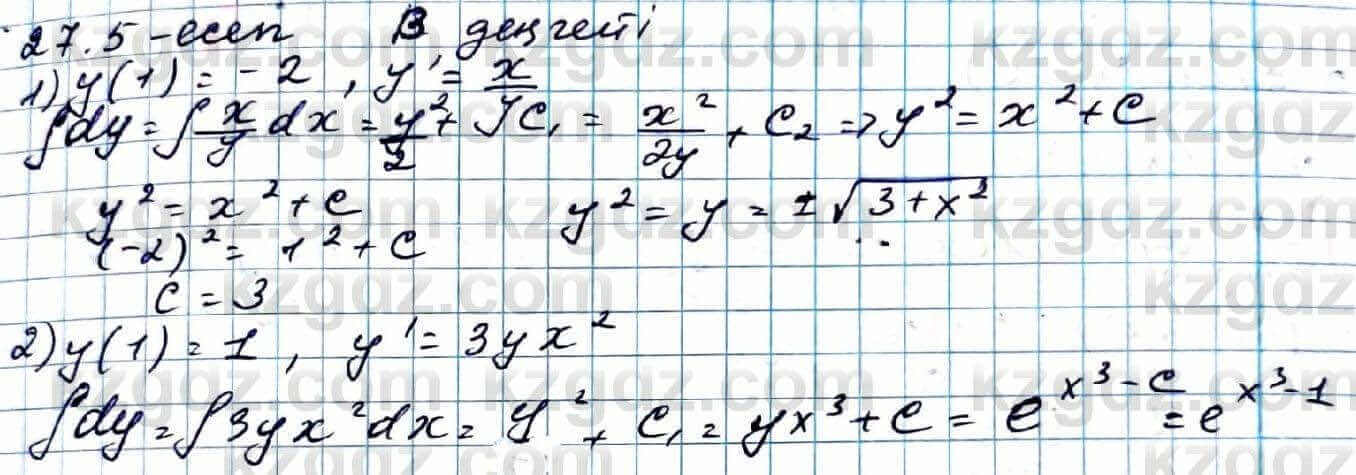 27.5-есеп В деңгейі
1) y(1) = -2, y' = x/y
∫dy = ∫x/y dx = y²/2 + C₁ = x²/2y + C₂ => y² = x² + C
y² = x² + C y² = y = ±√3+x²
(-2)² = 1² + C
C = 3
2) y(1) = 1, y' = 3yx²
∫dy = ∫3yx²dx = y² + C₁ = yx³ + C = e^x³-C = e^x³-1
kzgdz.com